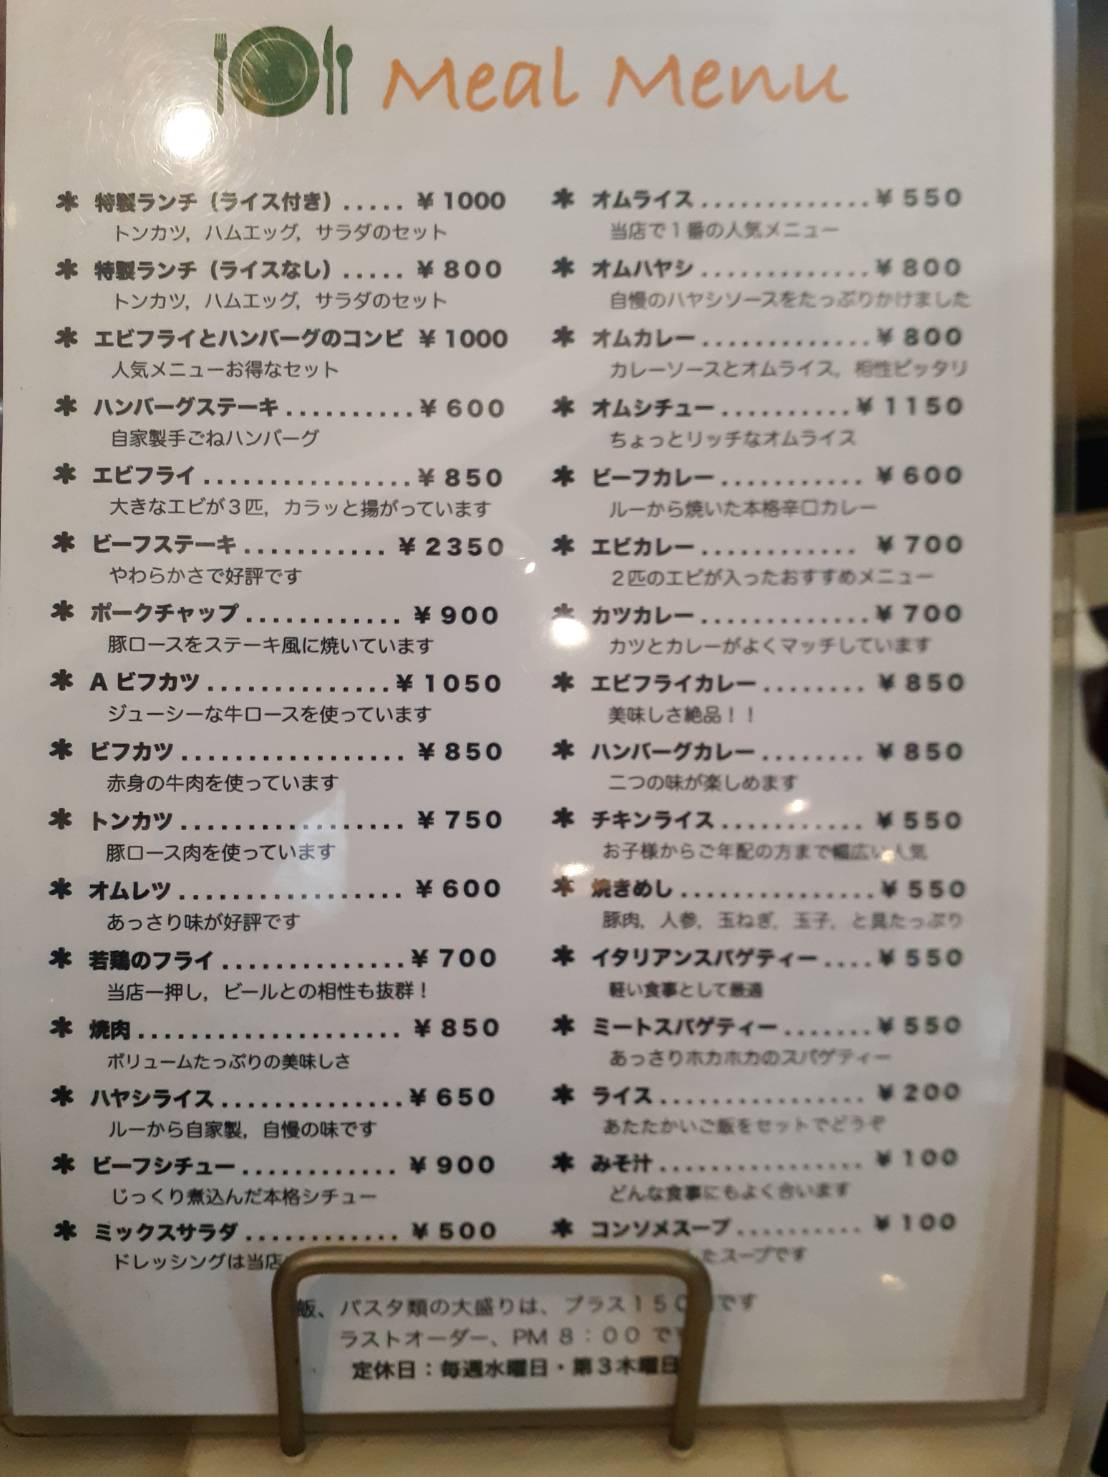 Meal Menu
* 特製ランチ（ライス付き）..... ¥ 1000
トンカツ，ハムエッグ，サラダのセット
* 特製ランチ（ライスなし）..... ¥ 800
トンカツ，ハムエッグ，サラダのセット
* エビフライとハンバーグのコンビ ¥ 1000
人気メニューお得なセット
* ハンバーグステーキ.......... ¥ 600
自家製手ごねハンバーグ
* エビフライ................ ¥ 850
大きなエビが３匹，カラッと揚がっています
* ビーフステーキ........... ¥ 2350
やわらかさで好評です
* ポークチャップ............ ¥ 900
豚ロースをステーキ風に焼いています
* A ビフカツ.............. ¥ 1050
ジューシーな牛ロースを使っています
* ビフカツ................. ¥ 850
赤身の牛肉を使っています
* トンカツ................. ¥ 750
豚ロース肉を使っています
* オムレツ................. ¥ 600
あっさり味が好評です
* 若鶏のフライ.............. ¥ 700
当店一押し，ビールとの相性も抜群！
* 焼肉.................... ¥ 850
ボリュームたっぷりの美味しさ
* ハヤシライス.............. ¥ 650
ルーから自家製，自慢の味です
* ビーフシチュー............ ¥ 900
じっくり煮込んだ本格シチュー
* ミックスサラダ............ ¥ 500
ドレッシングは当店
* オムライス............. ¥ 550
当店で１番の人気メニュー
* オムハヤシ............. ¥ 800
自慢のハヤシソースをたっぷりかけました
* オムカレー............. ¥ 800
カレーソースとオムライス，相性ピッタリ
* オムシチュー.......... ¥ 1150
ちょっとリッチなオムライス
* ビーフカレー........... ¥ 600
ルーから焼いた本格辛口カレー
* エビカレー............ ¥ 700
２匹のエビが入ったおすすめメニュー
* カツカレー............. ¥ 700
カツとカレーがよくマッチしています
* エビフライカレー........ ¥ 850
美味しさ絶品！！
* ハンバーグカレー........ ¥ 850
二つの味が楽しめます
* チキンライス........... ¥ 550
お子様からご年配の方まで幅広い人気
* 焼きめし............... ¥ 550
豚肉，人参，玉ねぎ，玉子，と具たっぷり
* イタリアンスパゲティー.... ¥ 550
軽い食事として最適
* ミートスパゲティー....... ¥ 550
あっさりホカホカのスパゲティー
* ライス................ ¥ 200
あたたかいご飯をセットでどうぞ
* みそ汁................ ¥ 100
どんな食事にもよく合います
* コンソメスープ.......... ¥ 100
したスープです
飯、パスタ類の大盛りは、プラス１５０です
ラストオーダー、PM ８：００で
定休日：毎週水曜日・第３木曜日